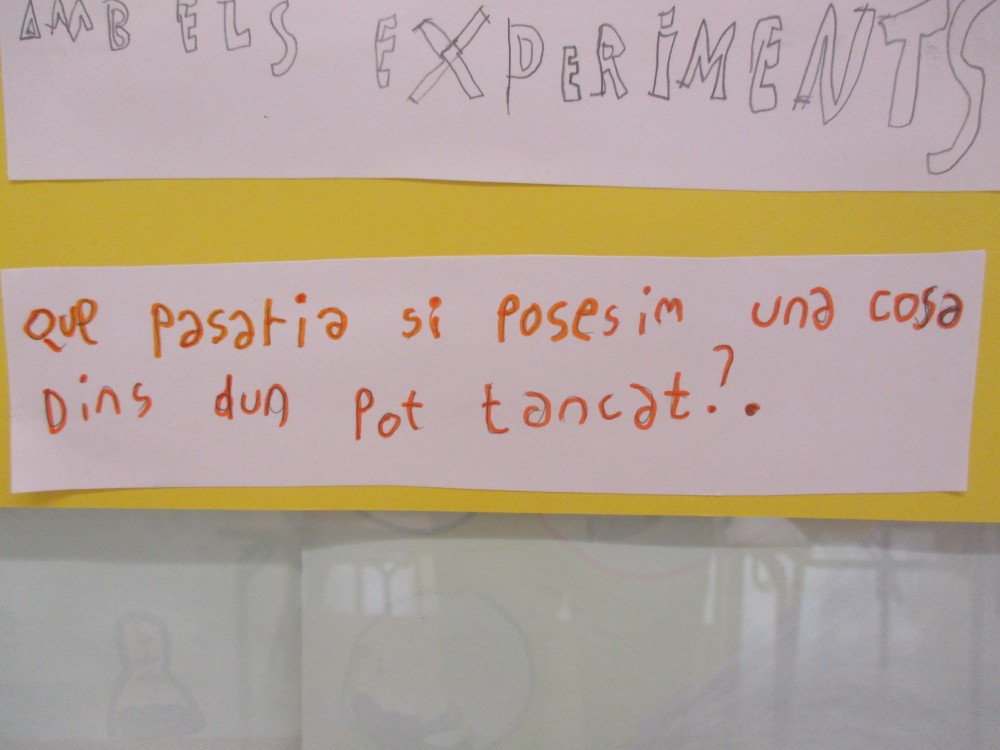 AMB ELS EXPERIMENTS
Que pasaria si posesim una cosa
Dins dun pot tancat?.